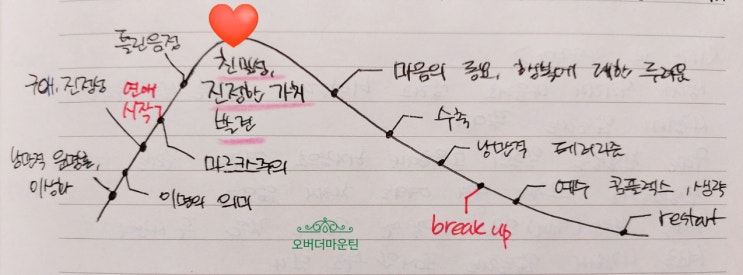 틀린음정
친밀성,
진정한 가치
발견
구애, 진정성
연애
시작
마르크스주의
낭만적 운명론,
이상화
이면의 의미
마음의 동요, 행복에 대한 두려움
수축
낭만적 테러리즘
예수 콤플렉스, 생략
break up
restart
오버더마운틴